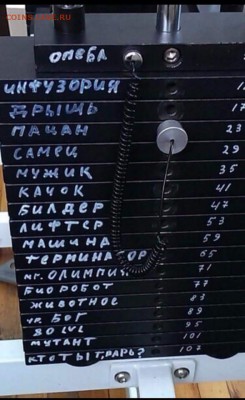 ОПЕВЛ
ИНФУЗОРИЯ
ДРЫЩЬ
ПАЦАН 23
САМЕЦ 29
МУЖИК 35
КАЧОК 41
БИЛДЕР 47
ЛИФТЕР 53
МАШИНА 59
ТЕРМИНАТОР 65
mr. ОЛИМПИЯ 71
БИОРОБОТ 77
ЖИВОТНОЕ 83
БОГ 89
80 LVL 95
МУТАНТ 101
КТО ТЫ ТВАРЬ? 107